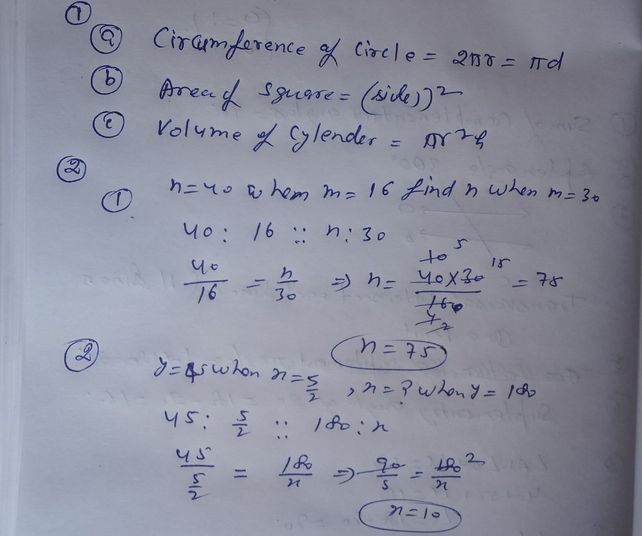 ① ⓐ Circumference of Circle = 2πr = πd
ⓑ Area of square = (side))²
ⓒ Volume of Cylender = πr²h
②
① n=40 when m=16 find n when m=30
40 : 16 :: n : 30
40/16 = n/30 ⇒ n = 40×30/16 = 75
10 5 15
4 2
n = 75
② y=45 when x=5/2, x=? when y=180
45 : 5/2 :: 180 : x
45/(5/2) = 180/x ⇒ 90/5 = 180/x 2
x=10